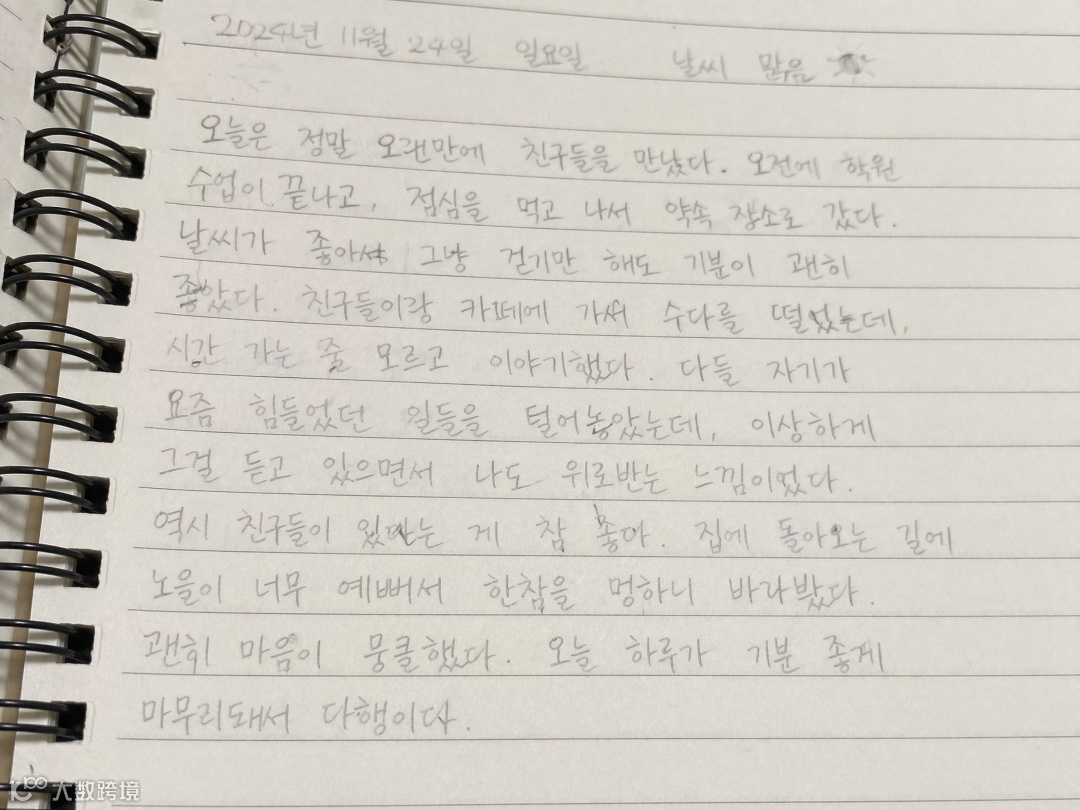 2024년 11월 24일 일요일 날씨 맑음
오늘은 정말 오랜만에 친구들을 만났다. 오전에 학원
수업이 끝나고, 점심을 먹고 나서 약속 장소로 갔다.
날씨가 좋아서 그냥 걷기만 해도 기분이 괜히
좋았다. 친구들이랑 카페에 가서 수다를 떨었는데,
시간 가는 줄 모르고 이야기했다. 다들 자기가
요즘 힘들었던 일들을 털어놓았는데, 이상하게
그걸 듣고 있으면서 나도 위로받는 느낌이었다.
역시 친구들이 있다는 게 참 좋아. 집에 돌아오는 길에
노을이 너무 예뻐서 한참을 멍하니 바라봤다.
괜히 마음이 뭉클했다. 오늘 하루가 기분 좋게
마무리돼서 다행이다.
大数跨境